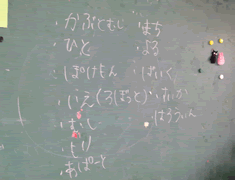 ・かぶともし ・まち
・ひと ・よる
・ぽけもん ・ばいく
・いえ(ろぼっと)
・むし ・はろうぃん
・とり
・あぱーと